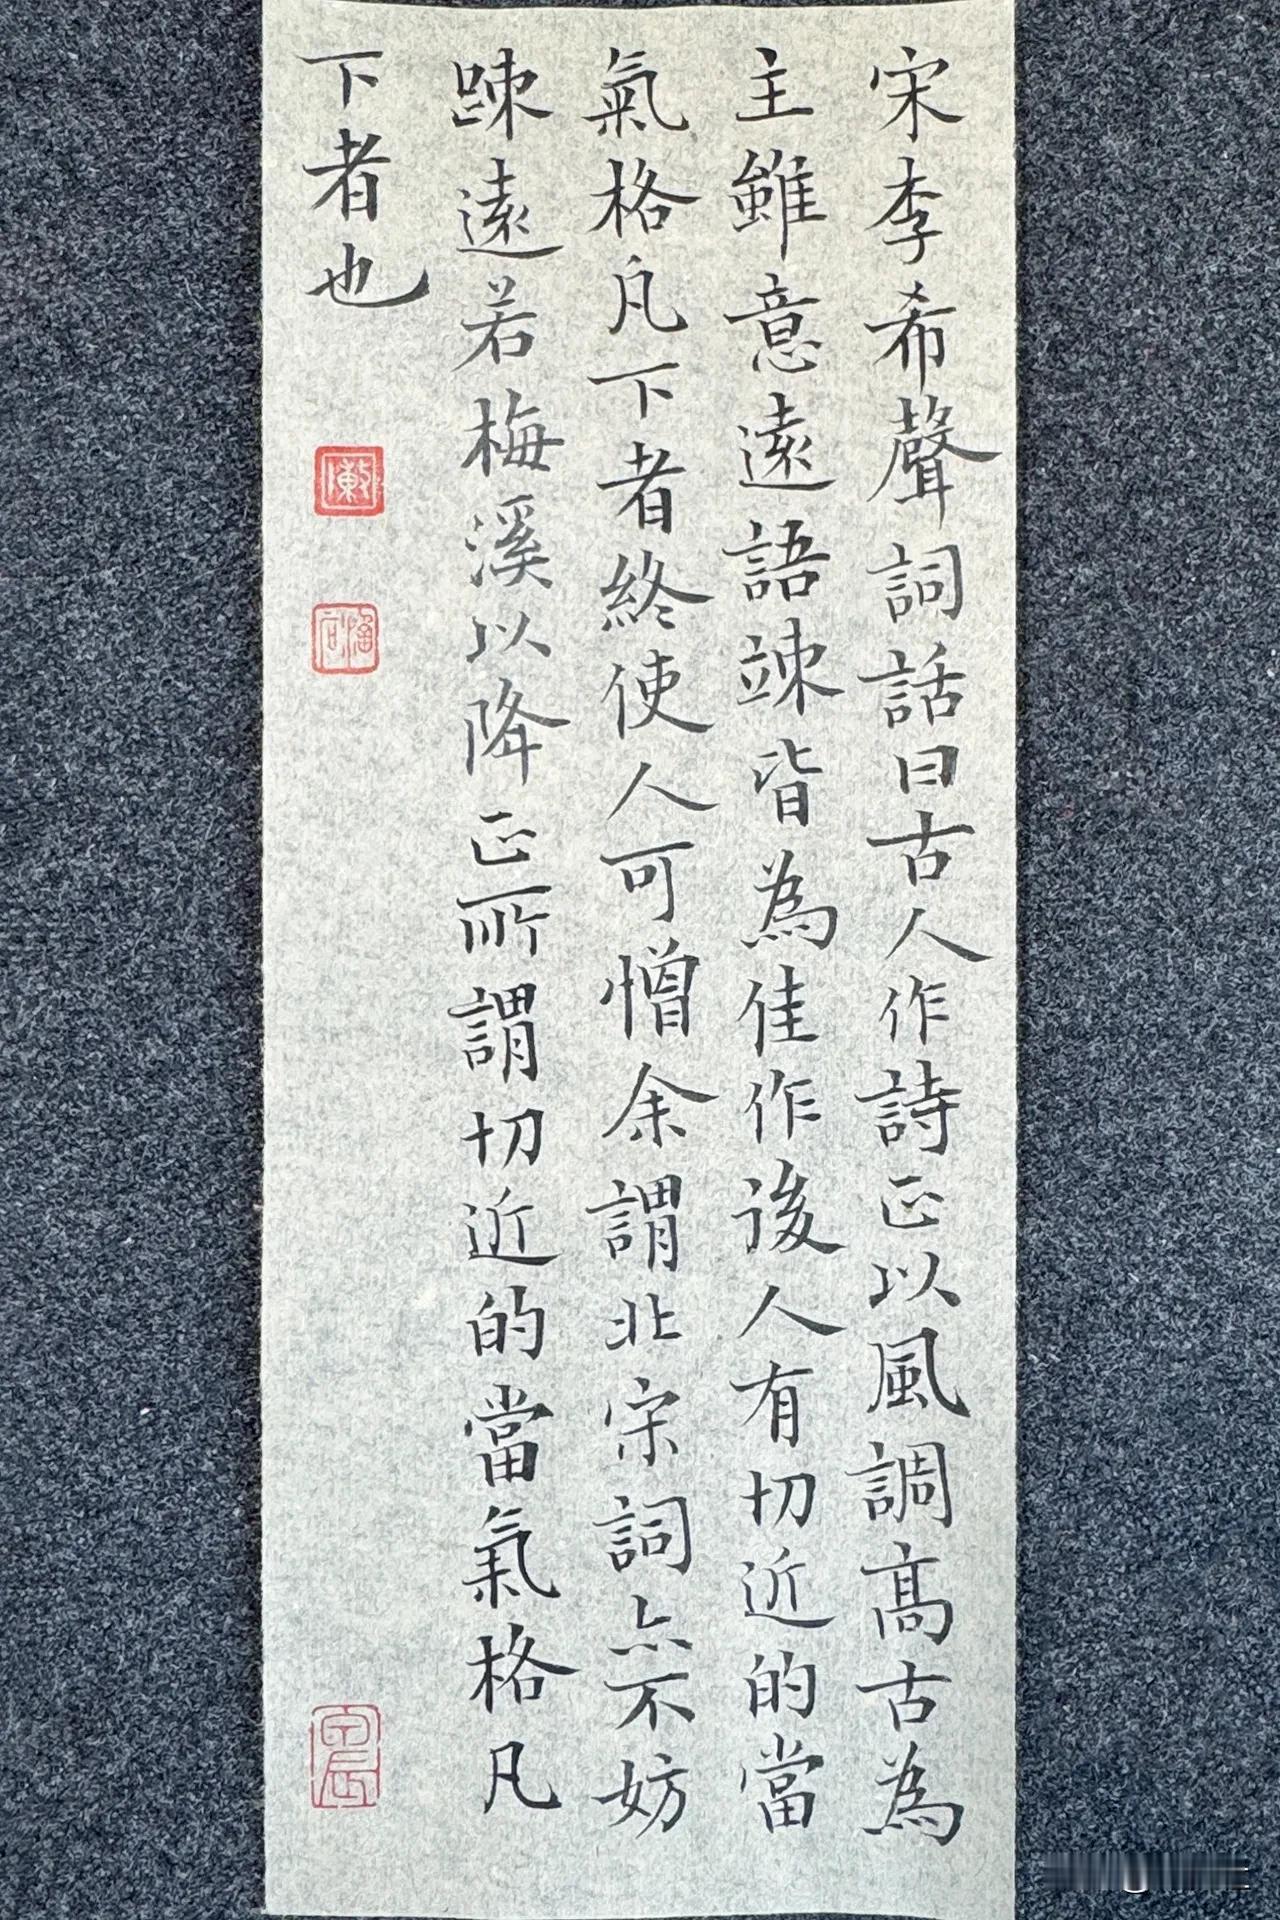 宋李希聲詞話曰古人作詩正以風調高古為
主雖意遠語踈皆為佳作後人有切近的當
氣格凡下者終使人可憎余謂北宋詞亦不妨
踈遠若梅溪以降正所謂切近的當氣格凡
下者也